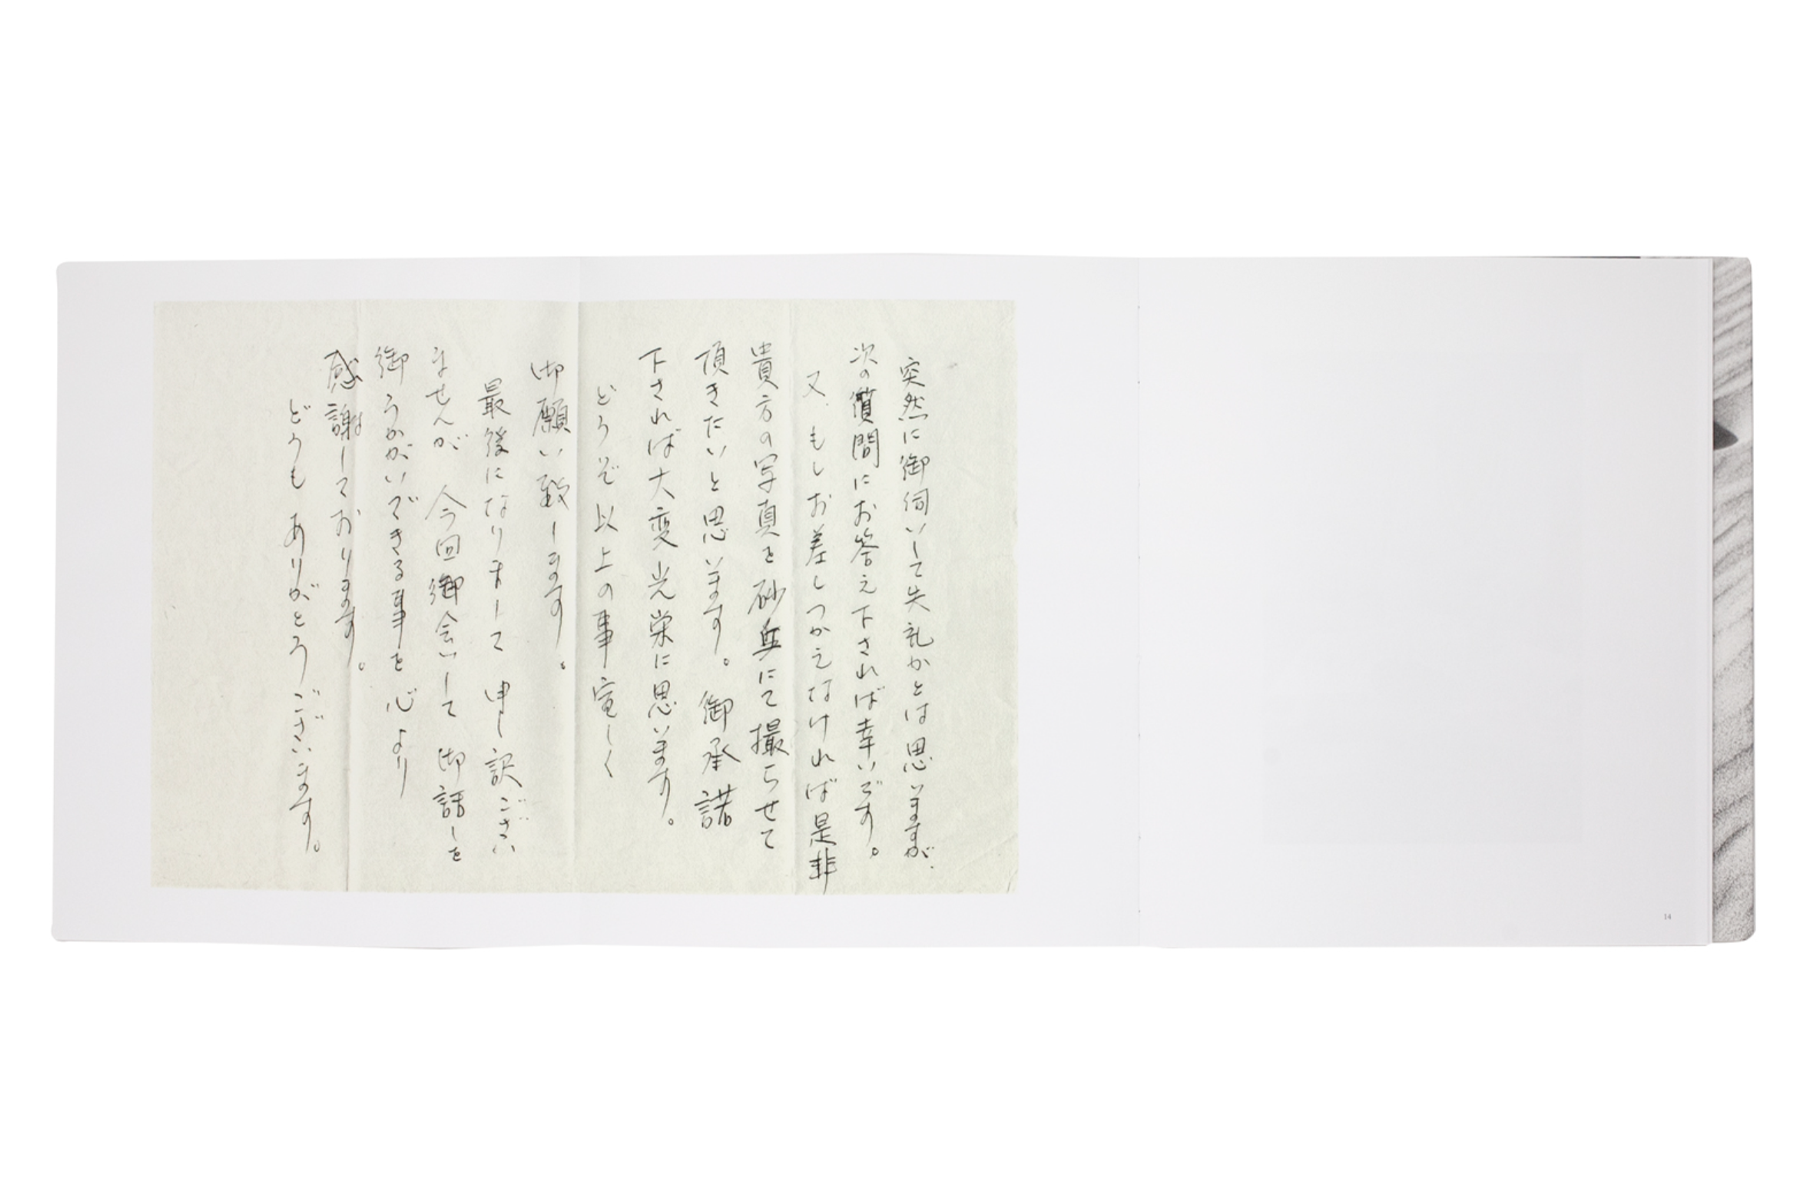 突然に御伺いして失礼かとは思いますが、
次の質問にお答え下されば幸いです。
又、もしお差しつかえなければ是非
貴方の写真を砂丘にて撮らせて
頂きたいと思います。御承諾
下されば大変光栄に思います。
どうぞ以上の事宜しく
御願い致します。
最後になりまして申し訳ござい
ませんが今回御会いして御話しを
御うかがいできる事を心より
感謝しております。
どうもありがとうございます。
14